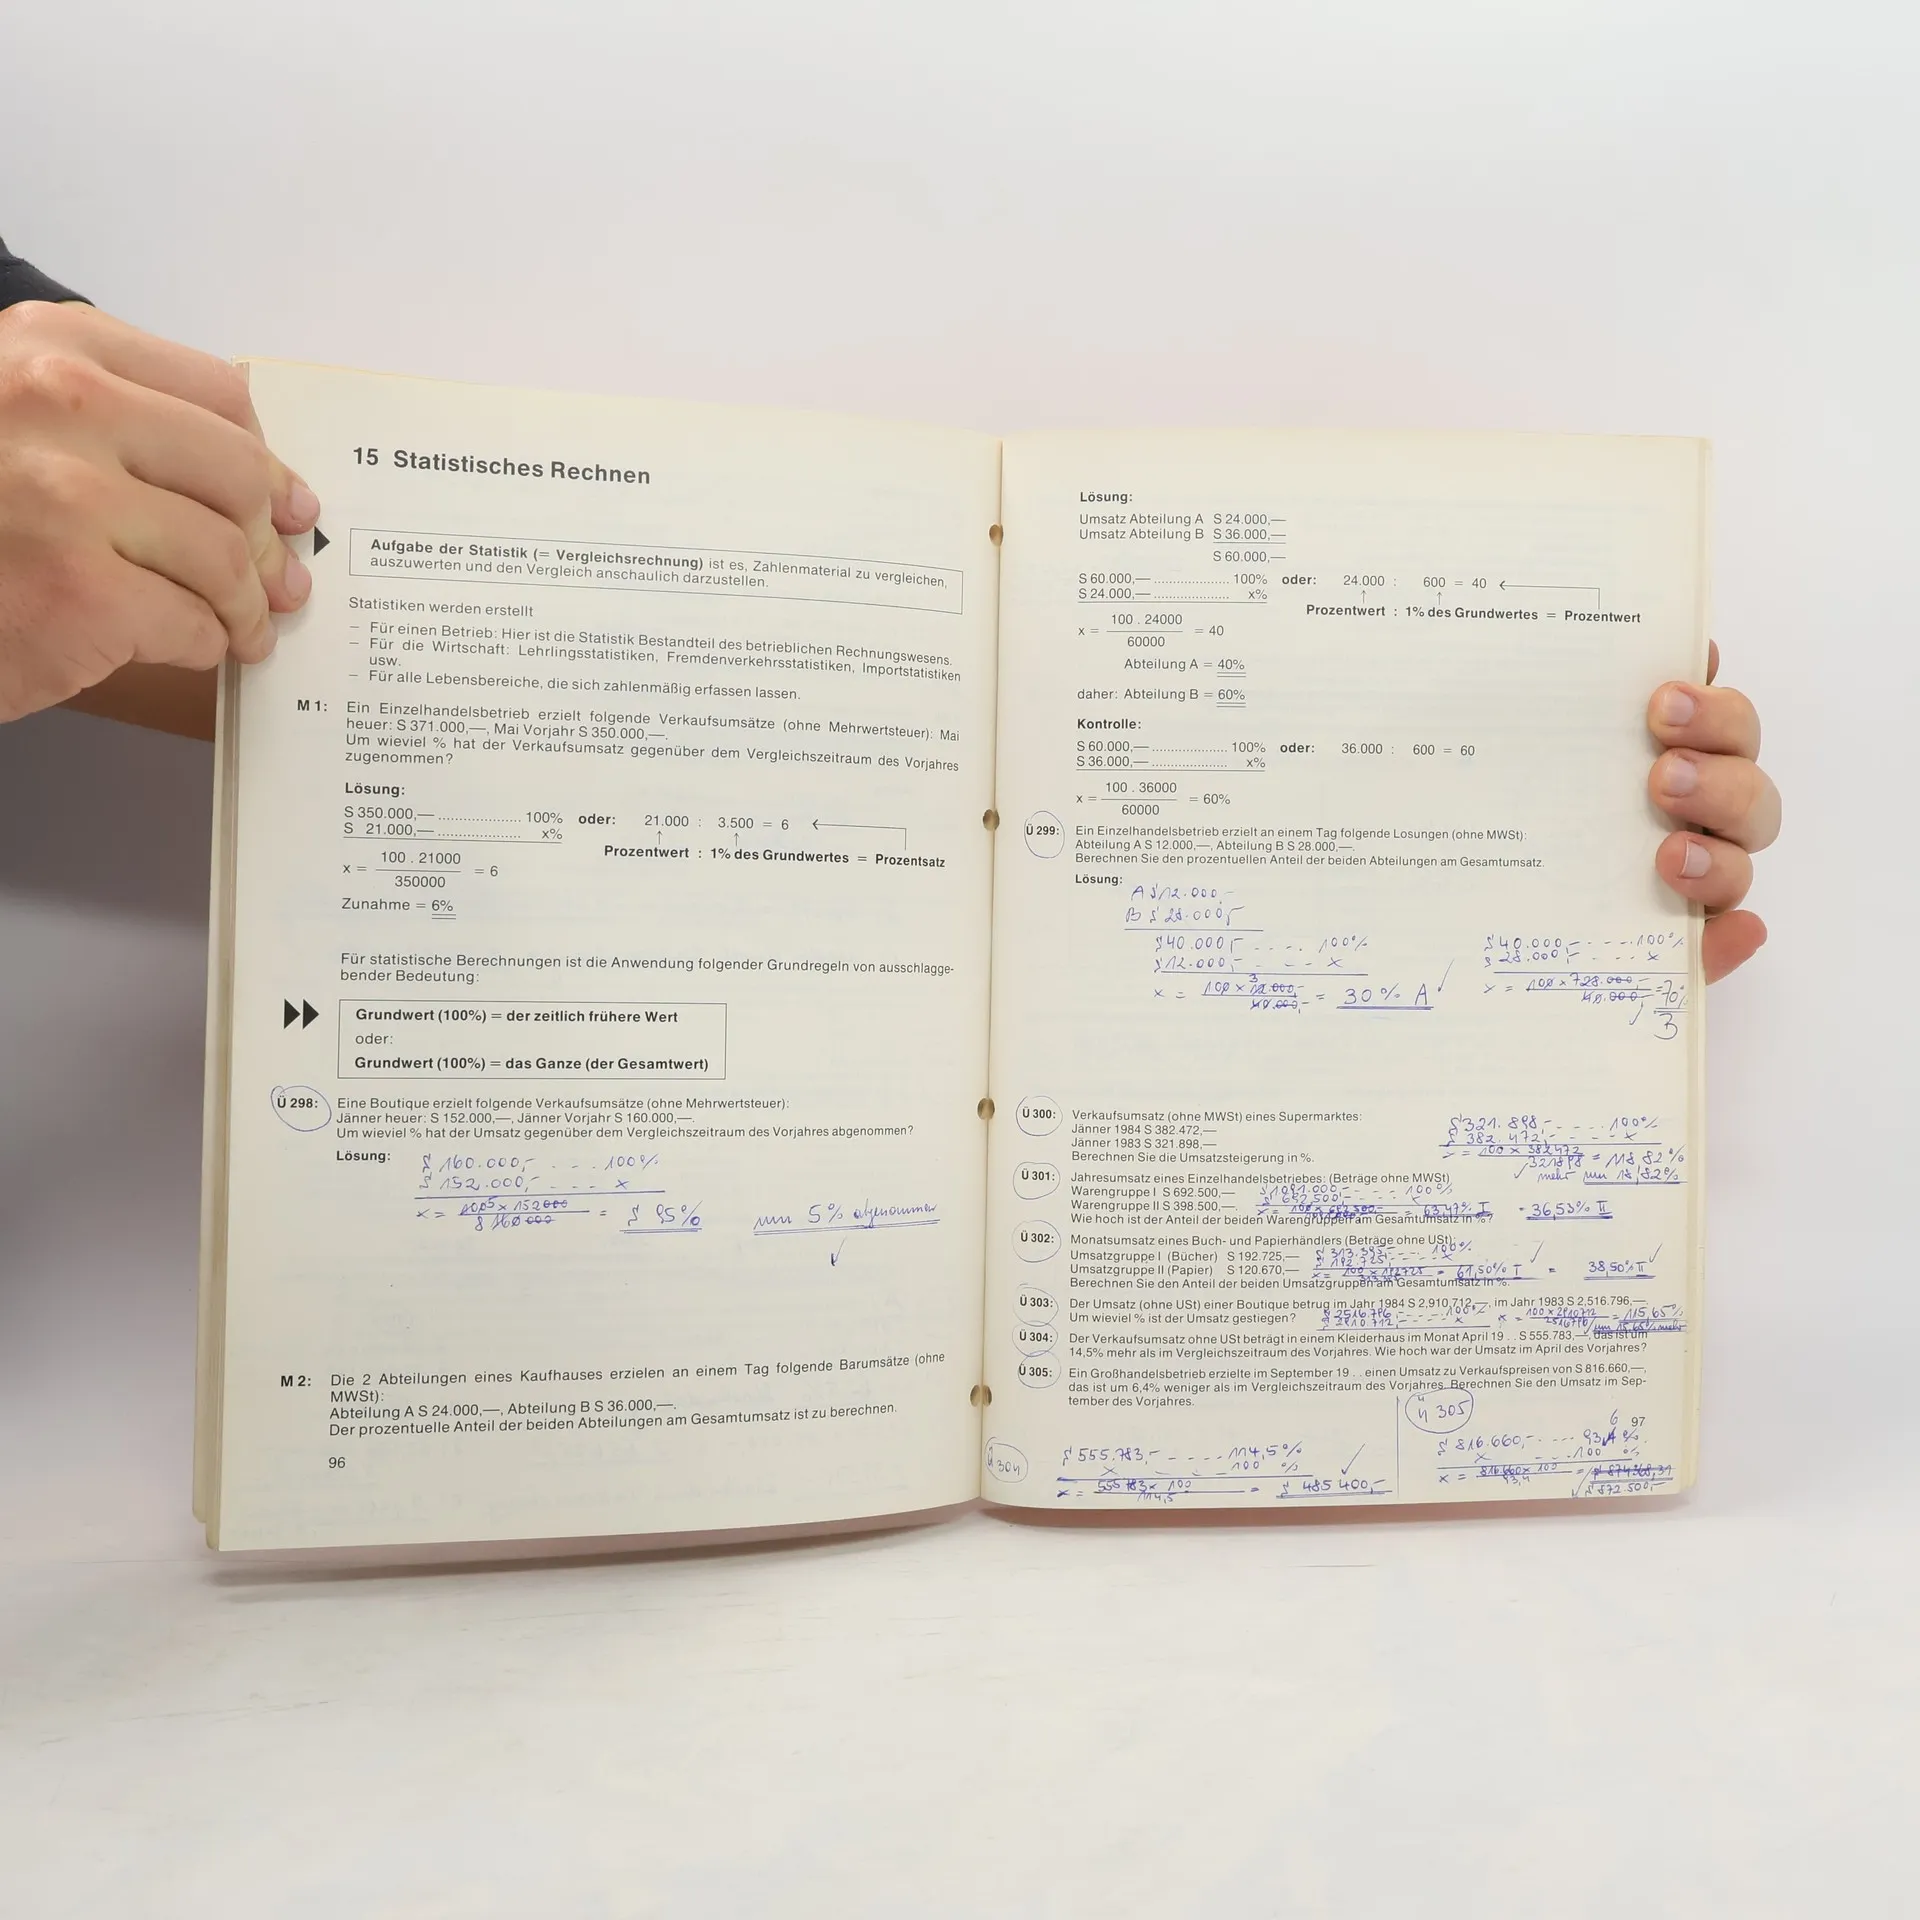 15 Statistisches Rechnen
Aufgabe der Statistik (= Vergleichsrechnung) ist es, Zahlenmaterial zu vergleichen,
auszuwerten und den Vergleich anschaulich darzustellen.
Statistiken werden erstellt
– Für einen Betrieb: Hier ist die Statistik Bestandteil des betrieblichen Rechnungswesens.
– Für die Wirtschaft: Lehrlingsstatistiken, Fremdenverkehrsstatistiken, Importstatistiken
usw.
– Für alle Lebensbereiche, die sich zahlenmäßig erfassen lassen.
M 1: Ein Einzelhandelsbetrieb erzielt folgende Verkaufsumsätze (ohne Mehrwertsteuer): Mai
heuer: S 371.000,—, Mai Vorjahr S 350.000,—.
Um wieviel % hat der Verkaufsumsatz gegenüber dem Vergleichszeitraum des Vorjahres
zugenommen?
Lösung:
S 350.000,— .................... 100% oder: 21.000 : 3.500 = 6
S 21.000,— .................... x%
Prozentwert : 1% des Grundwertes = Prozentsatz
100 . 21000
x = = 6
350000
Zunahme = 6%
Für statistische Berechnungen ist die Anwendung folgender Grundregeln von ausschlagge-
bender Bedeutung:
Grundwert (100%) = der zeitlich frühere Wert
oder:
Grundwert (100%) = das Ganze (der Gesamtwert)
Ü 298: Eine Boutique erzielt folgende Verkaufsumsätze (ohne Mehrwertsteuer):
Jänner heuer: S 152.000,—, Jänner Vorjahr S 160.000,—.
Um wieviel % hat der Umsatz gegenüber dem Vergleichszeitraum des Vorjahres abgenommen?
Lösung:
S 160.000,- .... 100%
S 152.000,- .... x
x = = S 95% um 5% abgenommen
M 2: Die 2 Abteilungen eines Kaufhauses erzielen an einem Tag folgende Barumsätze (ohne
MWSt):
Abteilung A S 24.000,—, Abteilung B S 36.000,—.
Der prozentuelle Anteil der beiden Abteilungen am Gesamtumsatz ist zu berechnen.
96
Lösung:
Umsatz Abteilung A S 24.000,—
Umsatz Abteilung B S 36.000,—
S 60.000,—
S 60.000,— .................... 100% oder: 24.000 : 600 = 40
S 24.000,— .................... x%
Prozentwert : 1% des Grundwertes = Prozentwert
100 . 24000
x = = 40
60000
Abteilung A = 40%
daher: Abteilung B = 60%
Kontrolle:
S 60.000,— .................... 100% oder: 36.000 : 600 = 60
S 36.000,— .................... x%
100 . 36000
x = = 60%
60000
Ü 299: Ein Einzelhandelsbetrieb erzielt an einem Tag folgende Losungen (ohne MWSt):
Abteilung A S 12.000,—, Abteilung B S 28.000,—.
Berechnen Sie den prozentuellen Anteil der beiden Abteilungen am Gesamtumsatz.
Lösung:
A S 12.000,-
B S 28.000,-
S 40.000,- .... 100% S 40.000,- .... 100%
S 12.000,- .... x S 28.000,- .... x
x = = 30% A x = = 70%
Ü 300: Verkaufsumsatz (ohne MWSt) eines Supermarktes:
Jänner 1984 S 382.472,—
Jänner 1983 S 321.898,—
Berechnen Sie die Umsatzsteigerung in %.
S 321.898,- .... 100%
S 382.472,- .... x
x = 100 x 382472 = 118,82%
321898
mehr um 18,82%
Ü 301: Jahresumsatz eines Einzelhandelsbetriebes: (Beträge ohne MWSt)
Warengruppe I S 692.500,— S 1091.000,- .... 100%
Warengruppe II S 398.500,—. S 692.500,- .... x
x = = 63,47% I - 36,53% II
Wie hoch ist der Anteil der beiden Warengruppen am Gesamtumsatz in %?
Ü 302: Monatsumsatz eines Buch- und Papierhändlers (Beträge ohne USt):
Umsatzgruppe I (Bücher) S 192.725,— S 313.395,- .... 100%
S 192.725,- .... x
Umsatzgruppe II (Papier) S 120.670,— x = 100 x 192725 = 61,50% I = 38,50% II
Berechnen Sie den Anteil der beiden Umsatzgruppen am Gesamtumsatz in %.
Ü 303: Der Umsatz (ohne USt) einer Boutique betrug im Jahr 1984 S 2,910.712,—, im Jahr 1983 S 2,516.796,—.
Um wieviel % ist der Umsatz gestiegen? S 2516.796,- .... 100% x = 100 x 2910712 = 115,65%
S 2910.712,- .... x 2516796 um 15,65% mehr
Ü 304: Der Verkaufsumsatz ohne USt beträgt in einem Kleiderhaus im Monat April 19 . . S 555.783,—, das ist um
14,5% mehr als im Vergleichszeitraum des Vorjahres. Wie hoch war der Umsatz im April des Vorjahres?
Ü 305: Ein Großhandelsbetrieb erzielte im September 19 . . einen Umsatz zu Verkaufspreisen von S 816.660,—,
das ist um 6,4% weniger als im Vergleichszeitraum des Vorjahres. Berechnen Sie den Umsatz im Sep-
tember des Vorjahres.
97
Ü 304
S 555.783,- .... 114,5%
x .... 100 %
x = 555783 x 100 = S 485400,-
114,5
Ü 305
S 816.660,- .... 93,6%
x .... 100 %
x = 816660 x 100 =
S 872.500,-